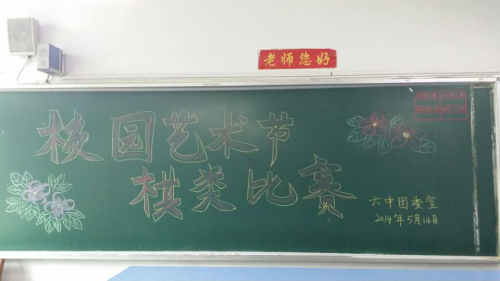 老师您好
校园艺术节
棋类比赛
六中团委宣
2014年5月14日